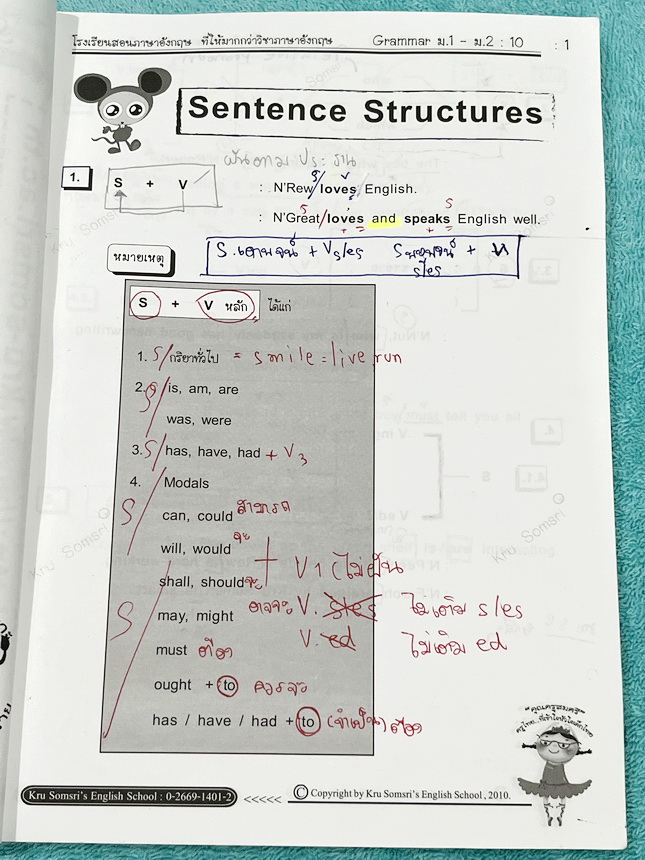 โรงเรียนสอนภาษาอังกฤษ ที่ให้มากกว่าวิชาภาษาอังกฤษ Grammar ม.1 - ม.2 : 10 : 1
Sentence Structures
ผันตามประธาน
1. S + V : N'Rew/loves English.
S V
: N'Great/loves and speaks English well.
S S
หมายเหตุ
S.เอกพจน์ + Vs/es S พหูพจน์ + V
s/es
S + V หลัก ได้แก่
1. S/กริยาทั่วไป = smile = live, run
2. S/is, am, are
was, were
3. S/has, have, had + V3
4. Modals
S/can, could สามารถ
will, would จะ
shall, should จะ + V1 (ไม่ผัน
S/may, might อาจจะ V. s/es ไม่เติม s/es
must ต้อง V. ed ไม่เติม ed
ought + to ควรจะ
has / have / had + to (จำเป็น) ต้อง
Kru Somsri
Kru Somsri
Kru Somsri
Kru Somsri
"คุณครูสมศรี"
Kru Somsri's English School : 0-2669-1401-2 <<<<< © Copyright by Kru Somsri's English School, 2010.